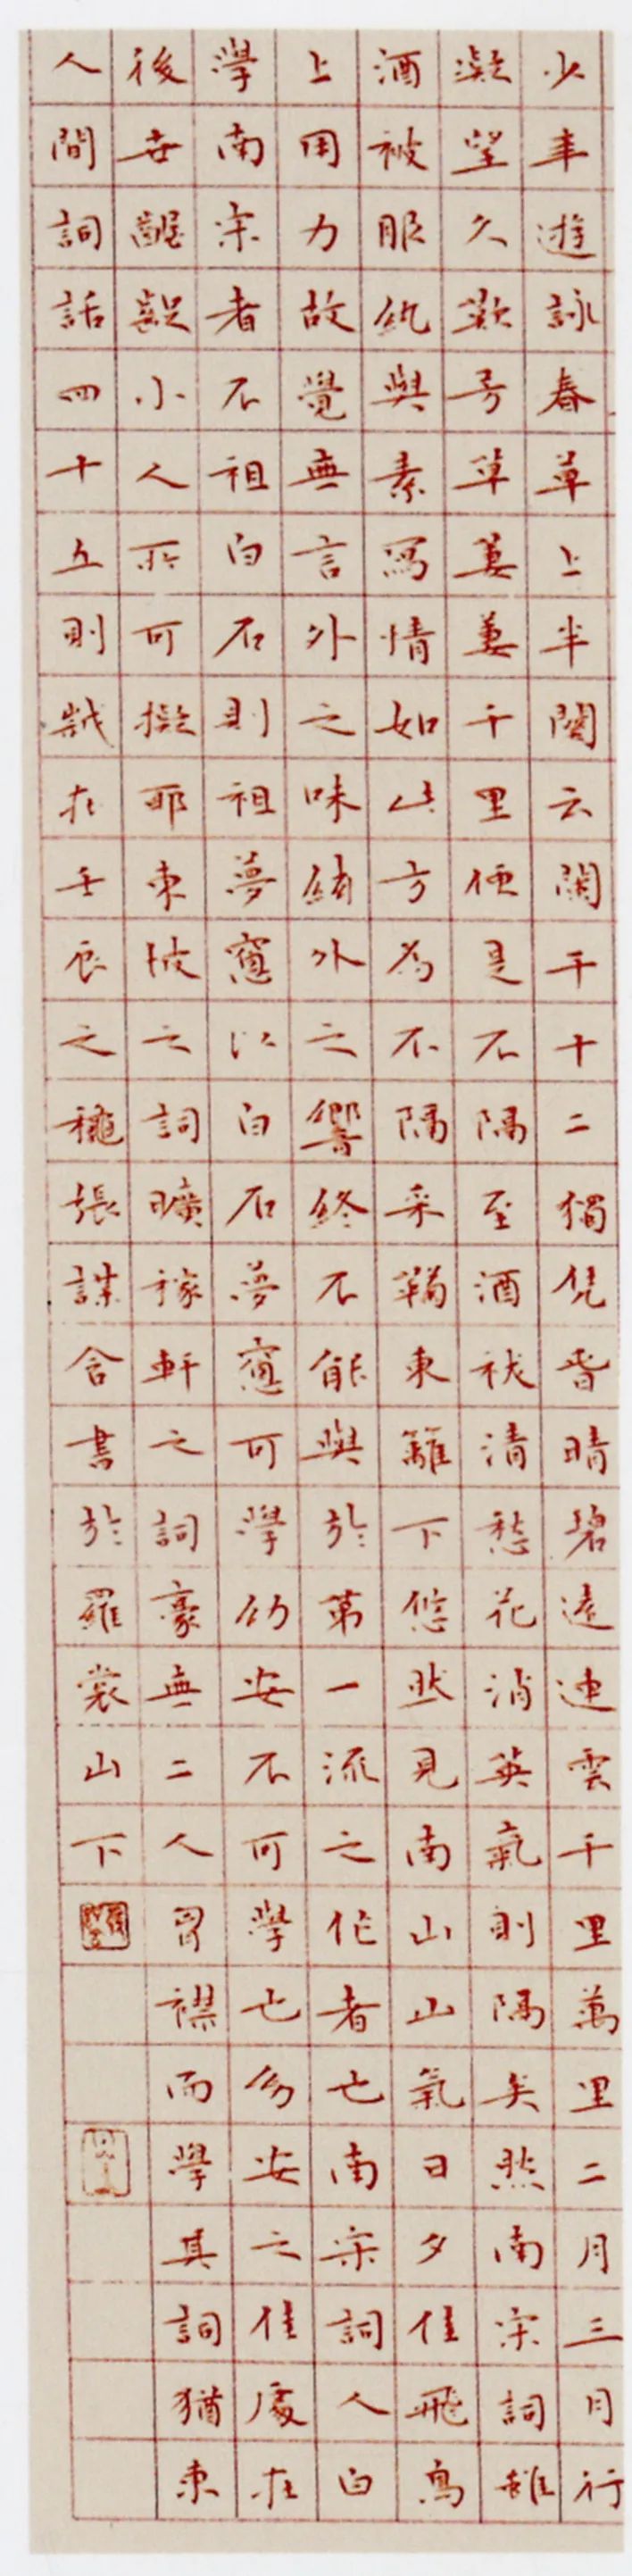 少年遊詠春草上半闋云闌干十二獨凭春晴碧遠連雲千里萬里二月三月行
凝望久歎芳草萋萋千里便是不隔至酒祓清愁花消英氣則隔矣然南宋詞雖
酒被服紈與素寫情如此方為不隔采鞠東籬下悠然見南山山氣日夕佳飛鳥
上用力故覺無言外之味絃外之響終不能與於第一流之作者也南宋詞人白
學南宋者不祖白石則祖夢窻以白石夢窻可學幼安不可學也幼安之佳處在
後世齷齪小人所可擬耶東坡之詞曠稼軒之詞豪無二人胷襟而學其詞猶東
人間詞話四十五則歲在壬辰之龝張謀含書於羅裳山下